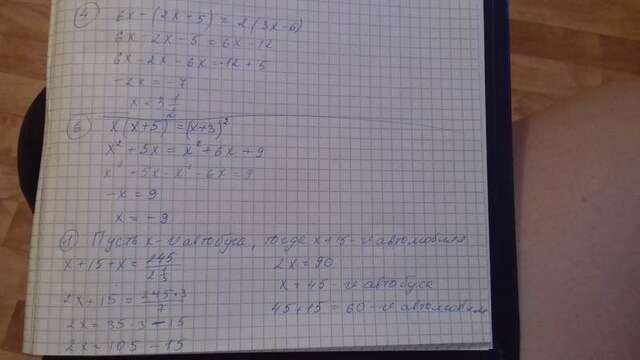 4 6x - (2x + 5) = 2(3x - 6)
6x - 2x - 5 = 6x - 12
6x - 2x - 6x = -12 + 5
-2x = -7
x = 3 1/2
6 x(x+5) = (x+3)²
x² + 5x = x² + 6x + 9
x² + 5x - x² - 6x = 9
-x = 9
x = -9
1 Пусть x - v автобуса, тогда x+15 - v автомобиля
x + 15 + x = 245 / 2 1/3
2x + 15 = 245·3 / 7
2x = 35·3 - 15
2x = 105 - 15
2x = 90
x = 45 - v автобуса
45 + 15 = 60 - v автомобиля